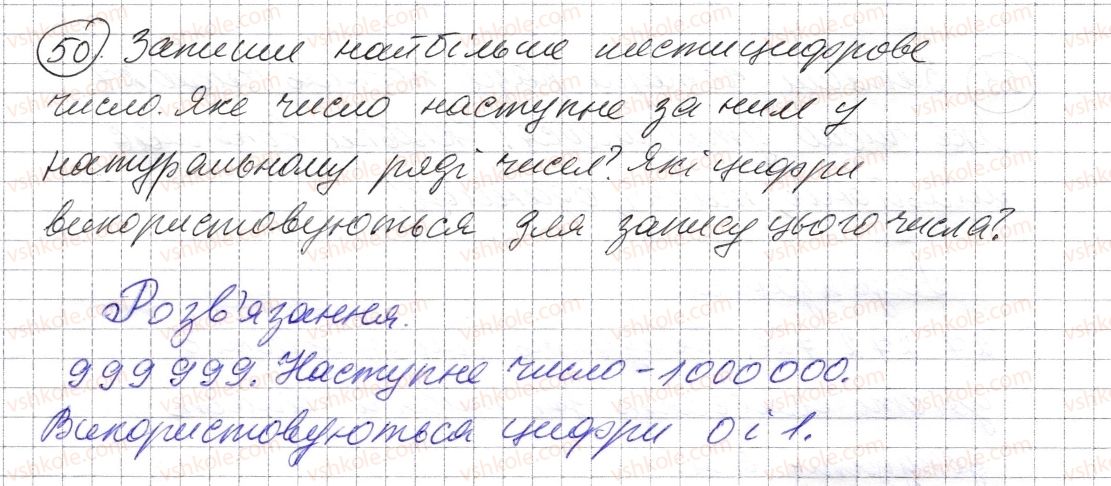 50. Запиши найбільше шестицифрове
число. Яке число наступне за ним у
натуральному ряді чисел? Які цифри
використовуються для запису цього числа?
Розв'язання.
999 999. Наступне число - 1000 000.
Використовуються цифри 0 і 1.